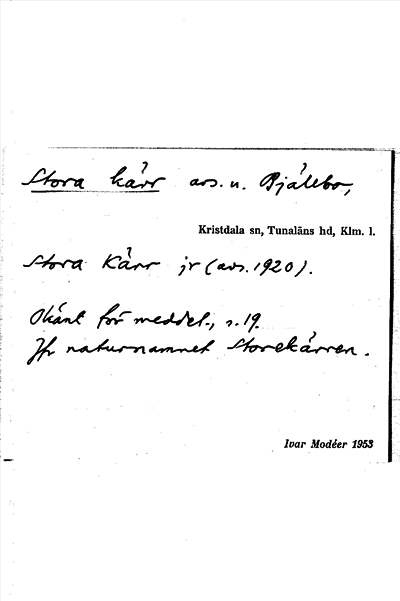 Stora kärr avs. u. Bjälebo,
Kristdala sn, Tunaläns hd, Klm. l.
Stora Kärr jr (avs. 1920).
Okänt för meddel., s. 19.
Jfr naturnamnet Storekärren.
Ivar Modéer 1953